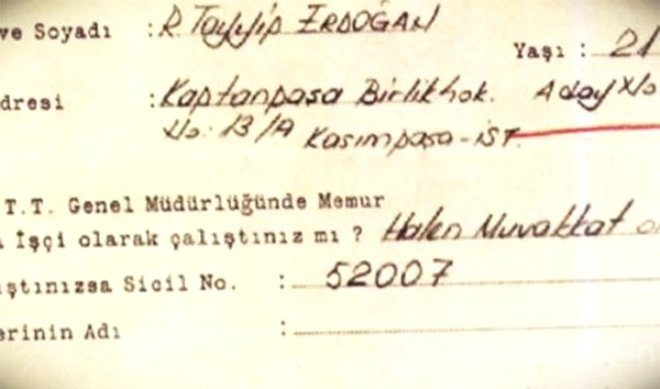 ve Soyadı : R. Tayyip ERDOĞAN
Yaşı : 21
dresi : Kaptanpaşa Birlikhok. Aday No
No: 13/A Kasımpaşa - İST.
T.T. Genel Müdürlüğünde Memur
İşçi olarak çalıştınız mı ? Halen Muvakkat
ıştınızsa Sicil No. : 52007
erinin Adı :